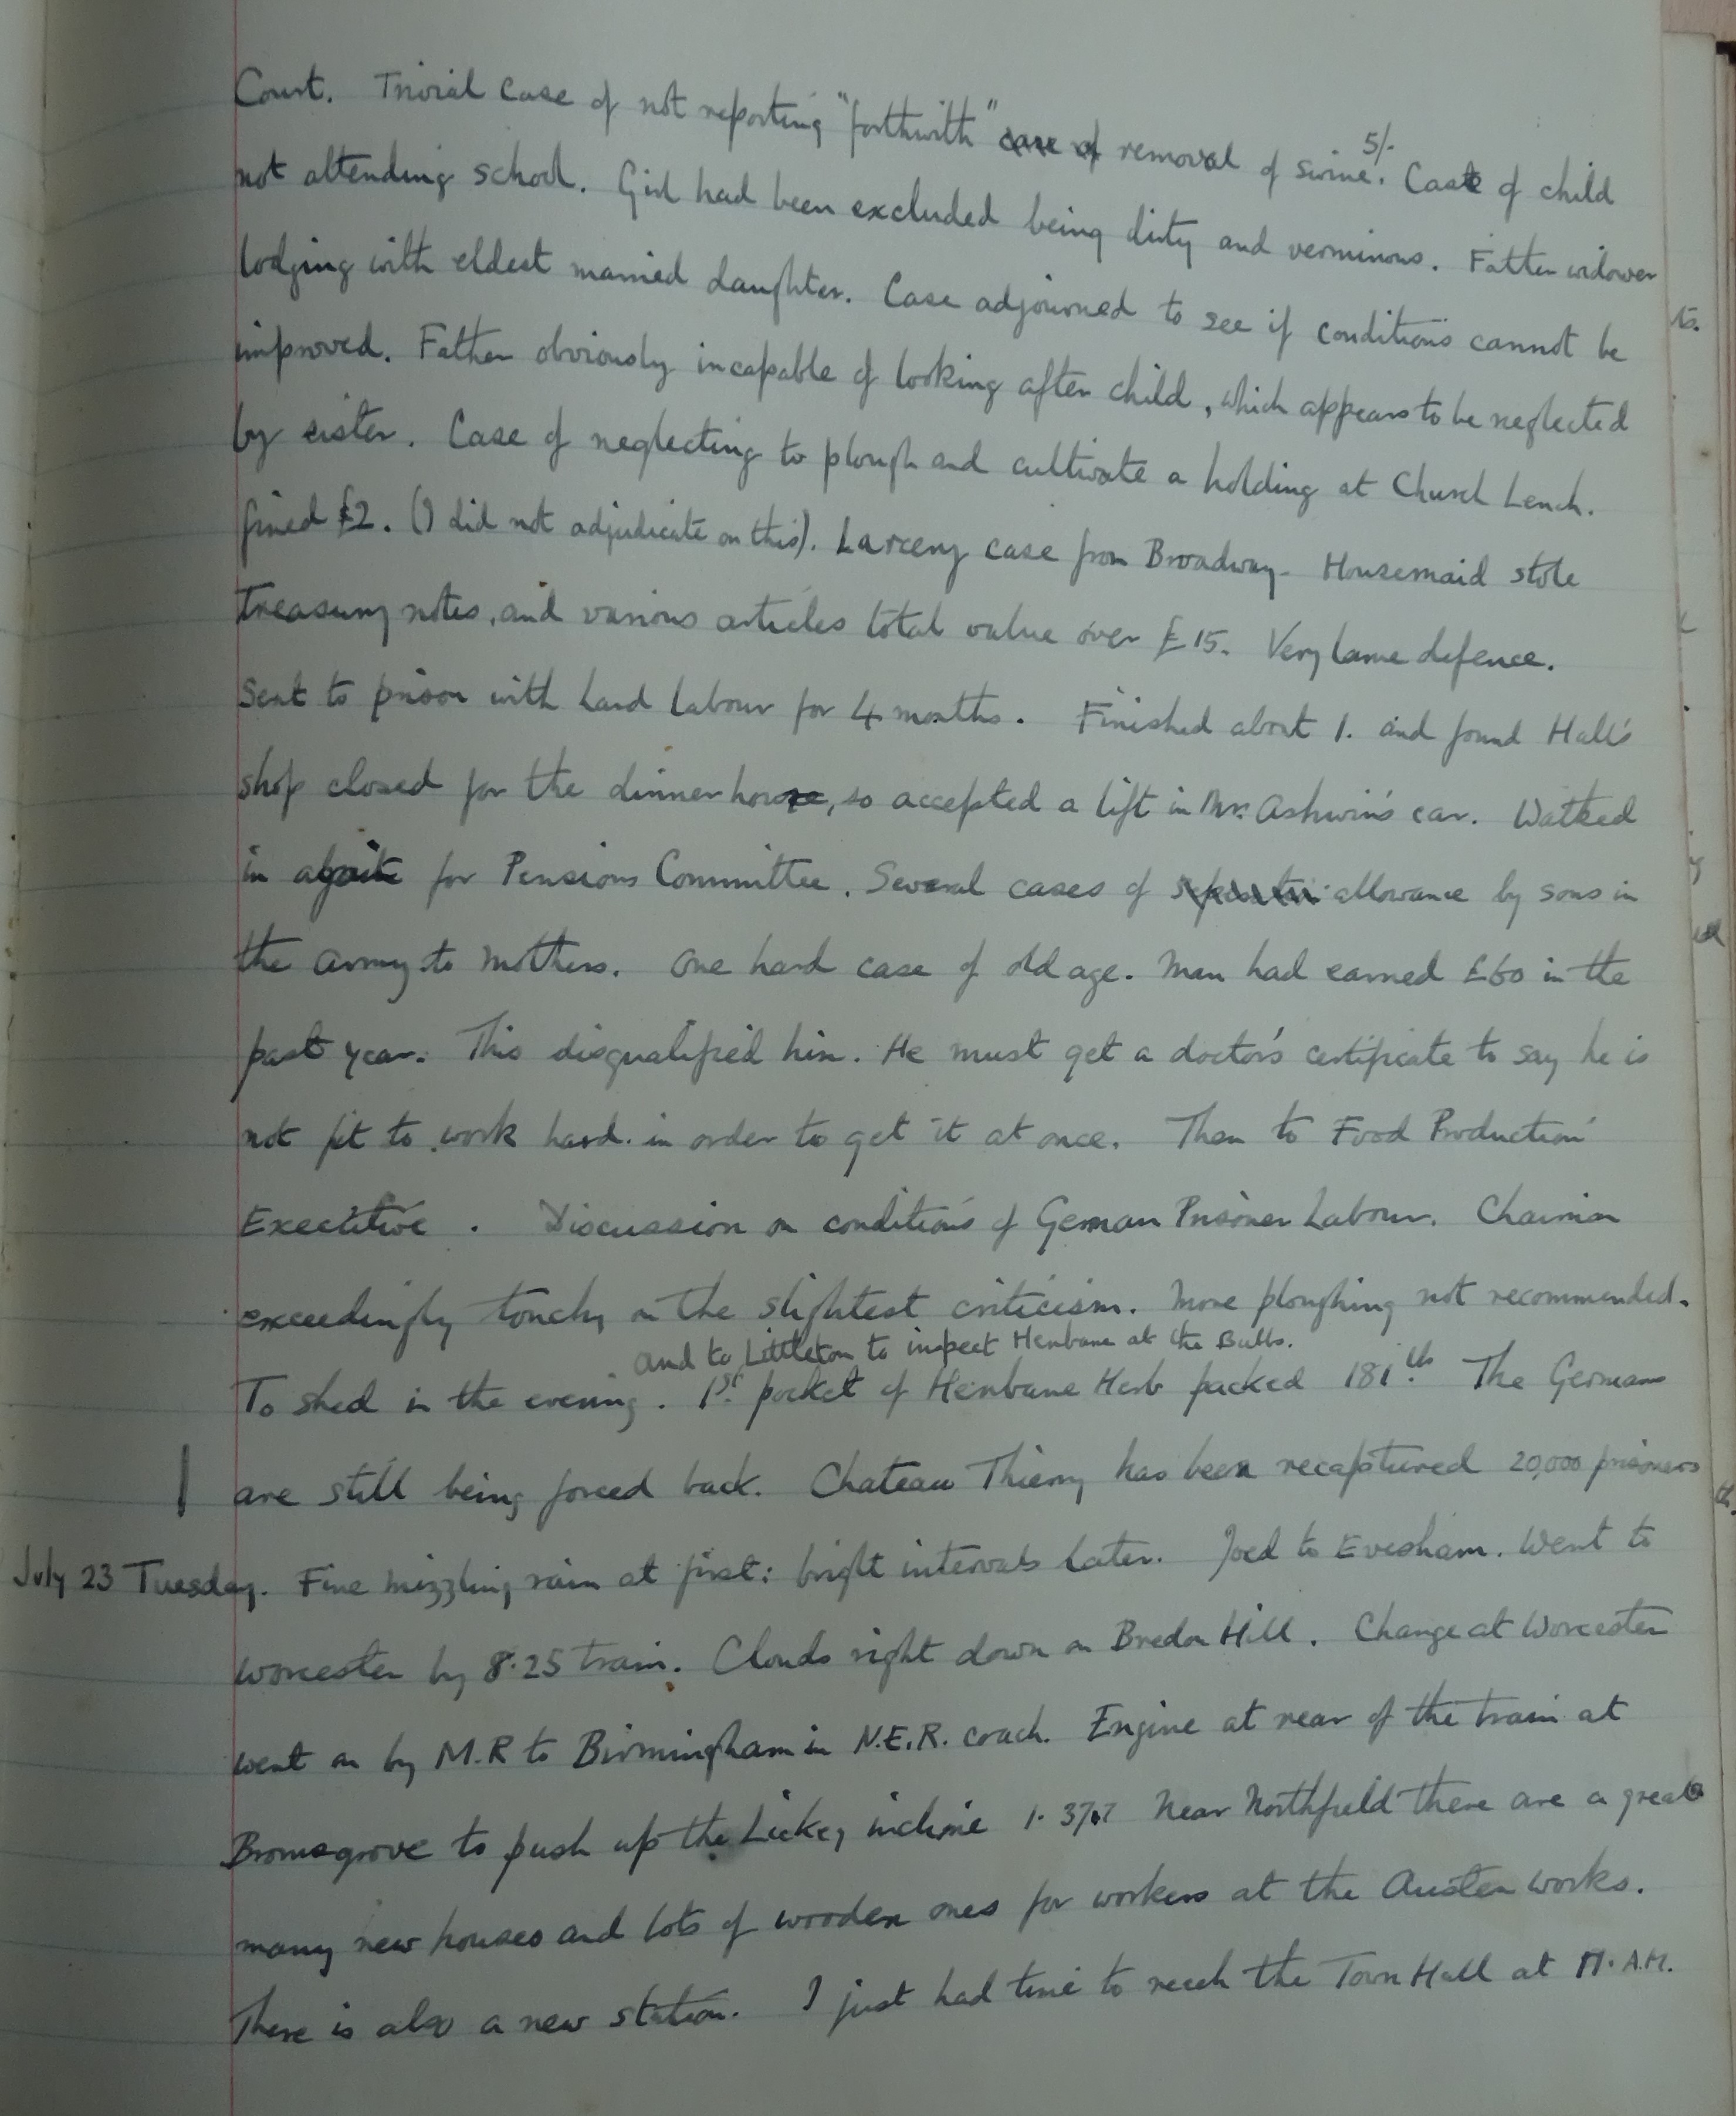 Court. Trivial case of not reporting "forthwith" case of removal of swine. 5/- Case of child
not attending school. Girl had been excluded being dirty and verminous. Father widower
lodging with eldest married daughter. Case adjourned to see if conditions cannot be
improved. Father obviously incapable of looking after child, which appears to be neglected
by sister. Case of neglecting to plough and cultivate a holding at Church Lench.
fined £2. (I did not adjudicate on this). Larceny case from Broadway. Housemaid stole
treasury notes, and various articles total value over £15. Very lame defence.
Sent to prison with hard labour for 4 months. Finished about 1. and found Hall's
shop closed for the dinner hour, so accepted a lift in Mr. Ashwin's car. Walked
in again for Pensions Committee. Several cases of allowance by sons in
the Army to mothers. One hard case of old age. Man had earned £60 in the
past year. This disqualified him. He must get a doctor's certificate to say he is
not fit to work hard in order to get it at once. Then to Food Production
Executive. Discussion on conditions of German Prisoner Labour. Chairman
exceedingly touchy on the slightest criticism. More ploughing not recommended.
and to Littleton to inspect Henbane at the Bulls.
To shed in the evening. 1st pocket of Henbane Herb packed 181 lb. The Germans
are still being forced back. Chateau Thierry has been recaptured 20,000 prisoners
July 23 Tuesday. Fine mizzling rain at first: bright intervals later. Joed to Evesham. Went to
Worcester by 8.25 train. Clouds right down on Bredon Hill. Change at Worcester
went on by M.R to Birmingham in N.E.R. coach. Engine at rear of the train at
Bromsgrove to push up the Lickey incline 1. 37.7 Near Northfield there are a great
many new houses and lots of wooden ones for workers at the Austen works.
There is also a new station. I just had time to reach the Town Hall at 11. A.M.